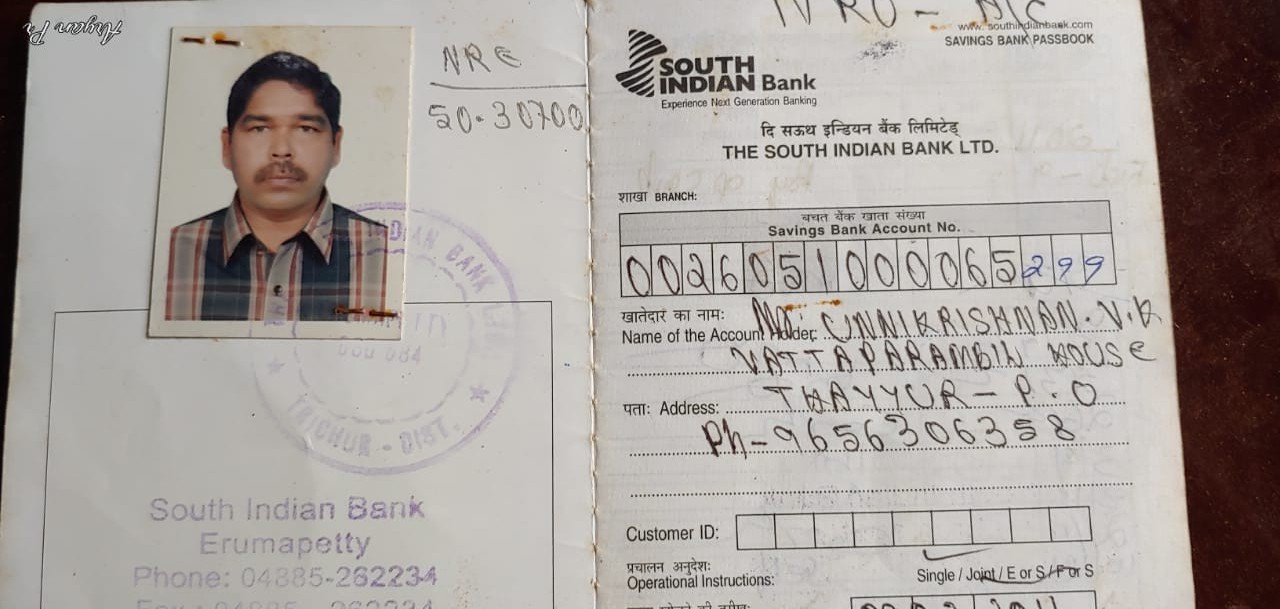 Aryan Pr
NRE
50-30700
INDIAN BANK LTD
680 584
TRICHUR - DIST.
South Indian Bank
Erumapetty
Phone: 04885-262234
Fax : 04885 - 262234
NRO -
www.southindianbank.com
SAVINGS BANK PASSBOOK
SOUTH
INDIAN Bank
Experience Next Generation Banking
दि साउथ इन्डियन बैंक लिमिटेड्
THE SOUTH INDIAN BANK LTD.
शाखा BRANCH:
बचत बैंक खाता संख्या
Savings Bank Account No.
0026051000065299
खातेदार का नाम:
Name of the Account Holder: UNNIKRISHNAN. V.K
VATTAPARAMBIL HOUSE
पता: Address: THAYYUR - P.O
Ph-9656306358
Customer ID:
प्रचालन अनुदेश:
Operational Instructions: Single / Joint / E or S / F or S